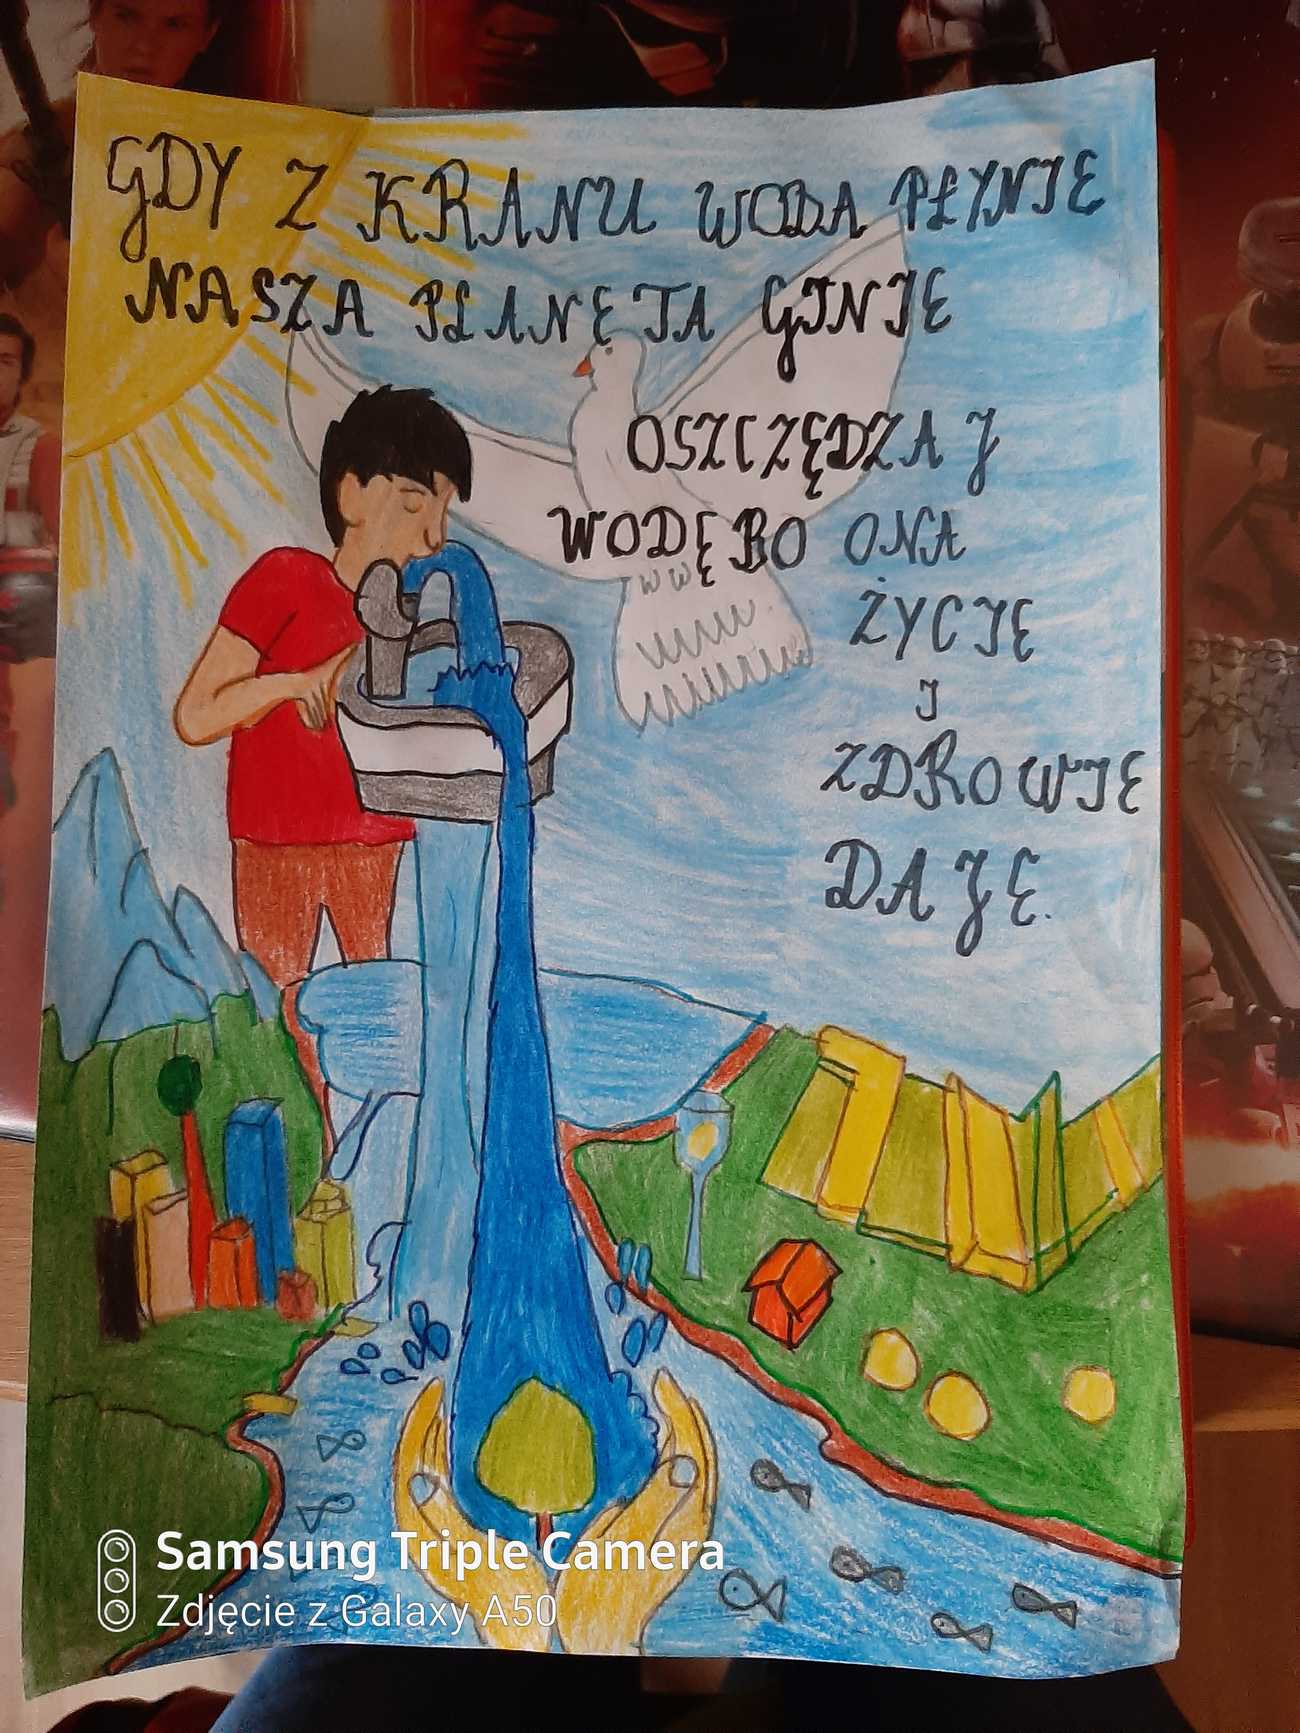 GDY Z KRANU WODA PŁYNIE
NASZA PLANETA GINIE
OSZCZĘDZAJ
WODĘ BO ONA
ŻYCIE
I
ZDROWIE
DAJE.
Samsung Triple Camera
Zdjęcie z Galaxy A50